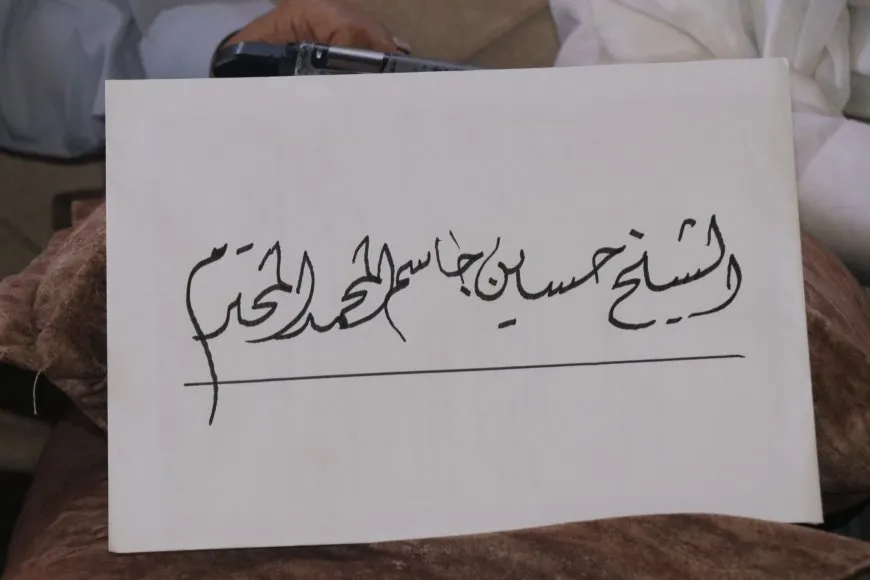 الشيخ حسين جاسم المحمد المحترم